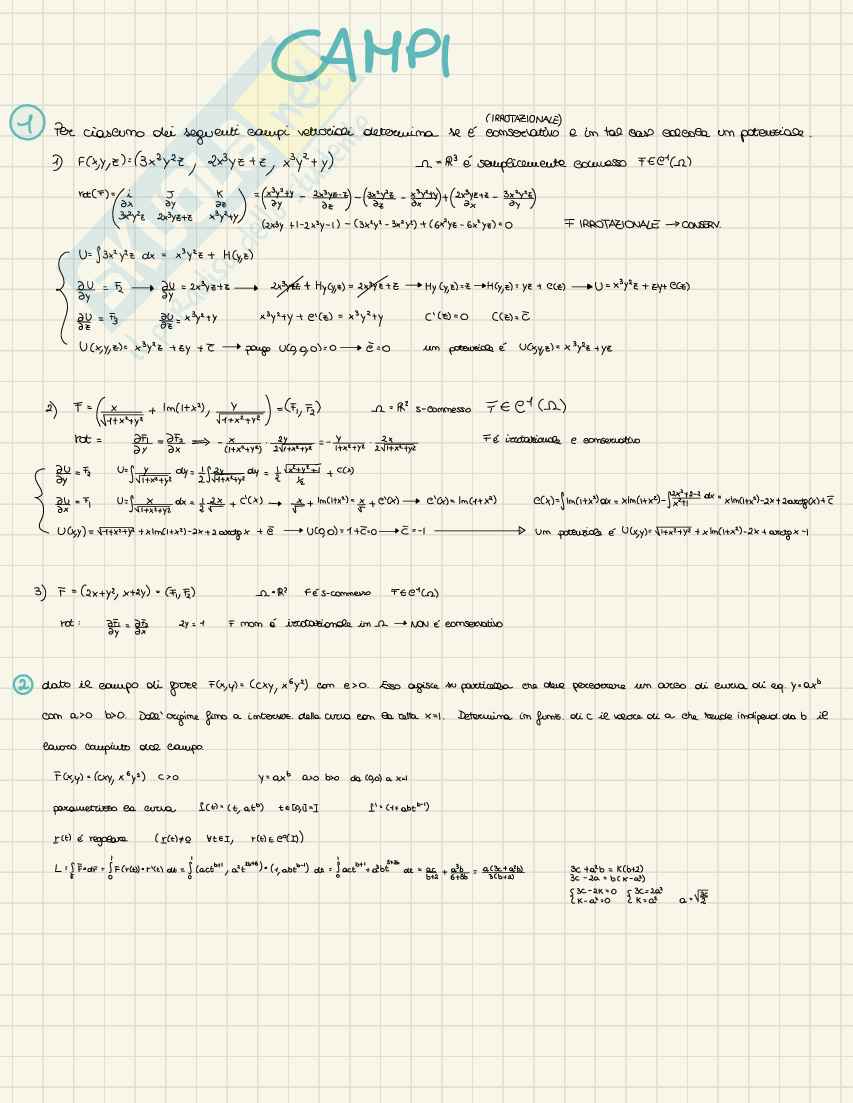 CAMPI
(IRROTAZIONALE)
1 Per ciascuno dei seguenti campi vettoriali determina se è conservativo e in tal caso calcola un potenziale.
1) F(x,y,z)=(3x²y²z, 2x³yz+z, x³y²+y) Ω=ℝ³ è semplicemente connesso F̄∈C¹(Ω)
F̄ IRROTAZIONALE → CONSERV.
(2x³y+1-2x³y-1)-(3x²y²-3x²y²)+(6x²yz-6x²yz)=0
U=∫3x²y²z dx = x³y²z + H(y,z)
∂U/∂y = F₂ → ∂U/∂y = 2x³yz+z → 2x³yz + Hy(y,z) = 2x³yz + z → Hy(y,z)=z → H(y,z)= yz + C(z) → U= x³y²z + zy + C(z)
∂U/∂z = F₃ ∂U/∂z = x³y²+y x³y²+y + C'(z) = x³y²+y C'(z)=0 C(z)=c̄
U(x,y,z)= x³y²z + zy + c̄ → pongo U(0,0,0)=0 → c̄=0 un potenziale è U(x,y,z)= x³y²z + yz
2) F̄ = (x/√(1+x²+y²) + ln(1+x²), y/√(1+x²+y²)) = (F₁, F₂) Ω=ℝ² s-connesso F̄∈C¹(Ω)
rot = ∂F₁/∂y = ∂F₂/∂x ⟹ -x/(1+x²+y²) · 2y/2√(1+x²+y²) = -y/(1+x²+y²) · 2x/2√(1+x²+y²) F̄ è irrotazionale e conservativo
∂U/∂y = F₂ U=∫y/√(1+x²+y²) dy = 1/2∫2y/√(1+x²+y²) dy = 1/2 √(x²+y²+1)/(1/2) + C(x)
C(x)=∫ln(1+x²)dx = xln(1+x²)-∫(2x²+2-2)/(x²+1) dx = xln(1+x²)-2x+2arctg(x)+c̄
U(x,y)= √(1+x²+y²) + xln(1+x²)-2x+2arctgx + c̄ → U(0,0)=1+c̄=0 → c̄=-1 → un potenziale è U(x,y)= √(1+x²+y²) + xln(1+x²)-2x+arctgx-1
3) F̄ = (2x+y², x+2y) = (F₁, F₂) Ω=ℝ² F è s-connesso F̄∈C¹(Ω)
rot: ∂F₁/∂y = ∂F₂/∂x 2y=1 F non è irrotazionale in Ω → NON è conservativo
2 dato il campo di forze F̄(x,y) = (cxy, x⁶y²) con c>0. Esso agisce su particella che deve percorrere un arco di curva di eq. y=axᵇ
con a>0 b>0. Dall'origine fino a intersez. della curva con la retta x=1. Determina in funz. di c il valore di a che rende indipend. da b il
lavoro compiuto dal campo
F̄(x,y) = (cxy, x⁶y²) c>0 y=axᵇ a>0 b>0 da (0,0) a x=1
parametrizzo la curva r(t) = (t, atᵇ) t∈[0,1]=I
r(t) è regolare (r(t)≠0 ∀t∈I,
3c+a²b = K(b+2)
3c-2a = b(K-a²)
{3c-2K=0 {3c=2a²
{K-a²=0 {K=a²